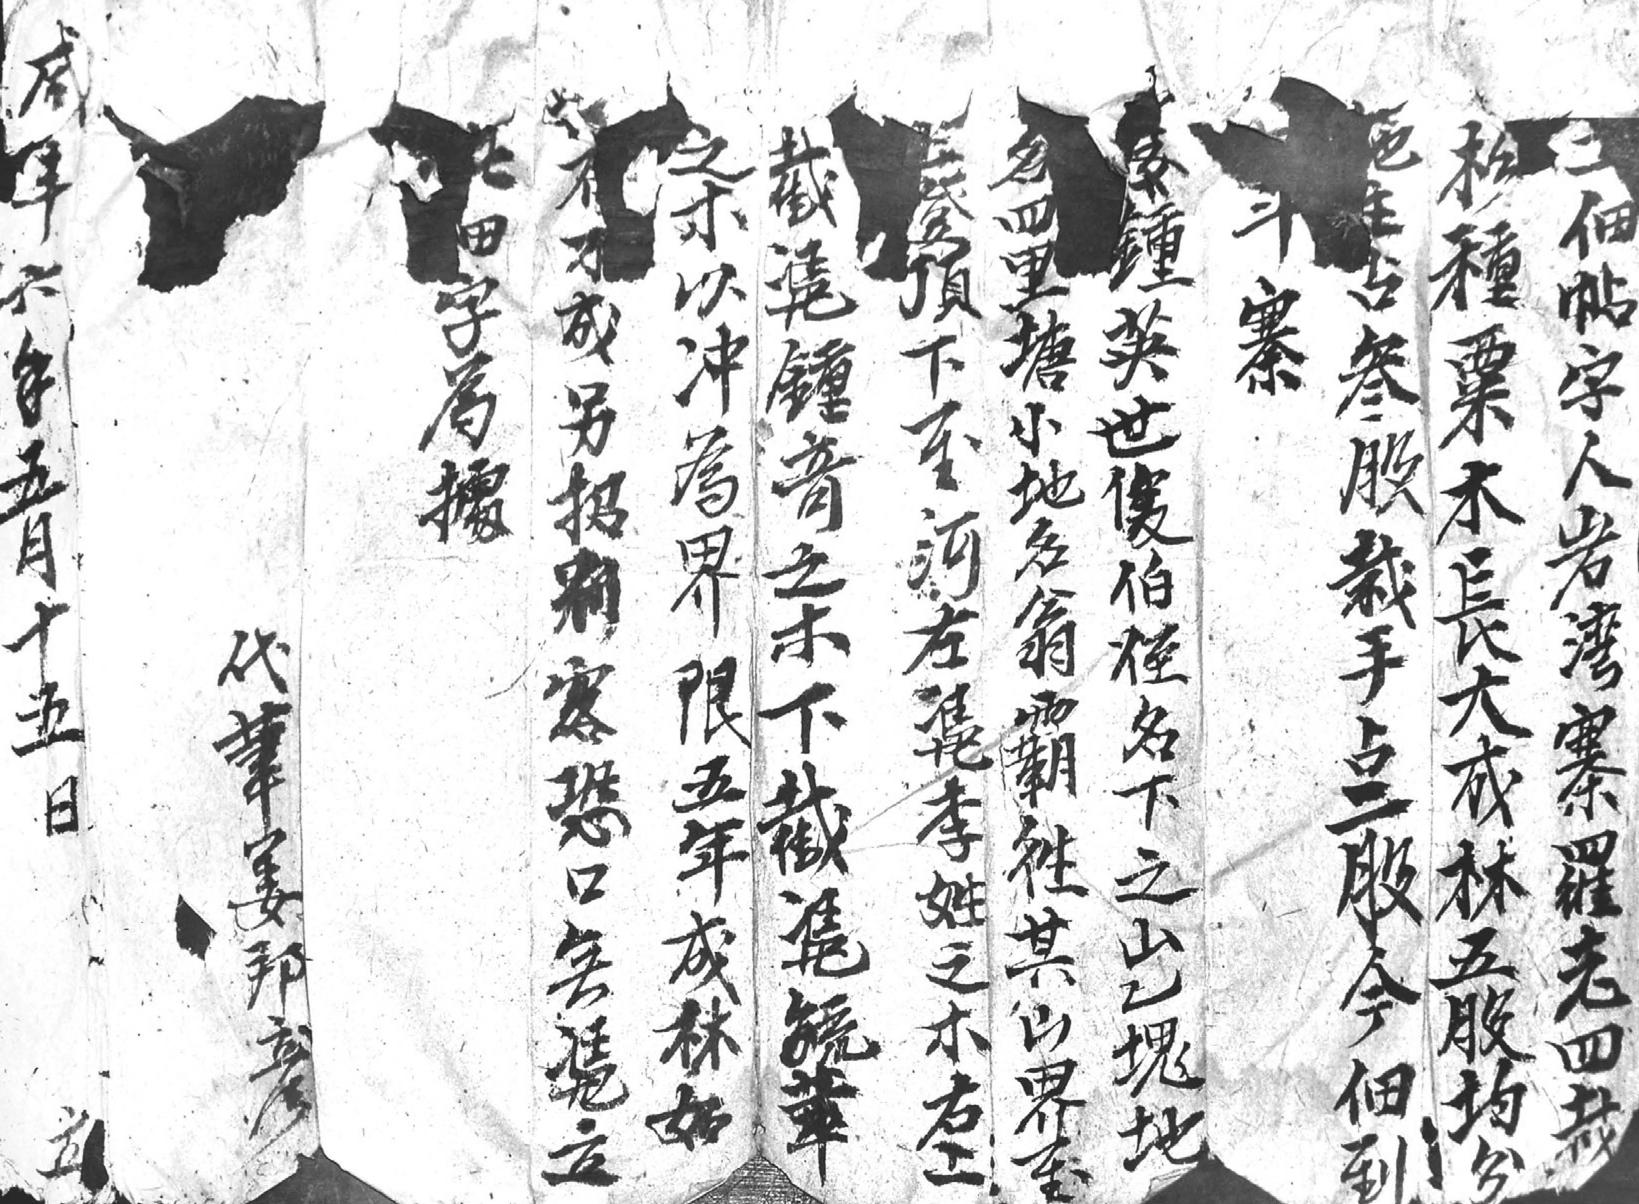 立佃帖字人岩湾寨羅老四栽
杉種粟木長大成林五股均分
地主占叁股栽手占二股今佃到
斗寨
姜鍾英世俊伯姪名下之山乙塊地
名四里塘小地名翁霸祚其山界至
上登頂下至河左凴李姓之木右上
截凴鍾音之木下截凴毓華
之木以冲為界限五年成林如
有不成另招別客恐口無凴立
此佃字為據
代筆姜邦彦
咸年六年五月十五日 立